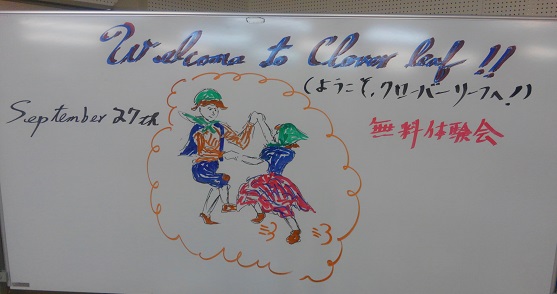 Welcome to Clover leaf!!
(ようこそ,クローバーリーフへ!)
September 27th
無料体験会